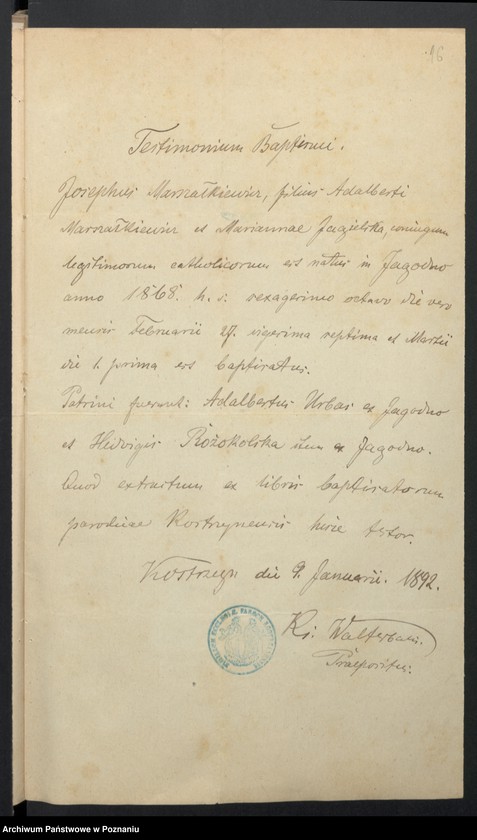 16
Testimonium Baptismi.
Josephus Marszałkiewicz, filius Adalberti
Marszałkiewicz et Mariannae Jagielska, coniugum
legitimorum catholicorum est natus in Jagodno
anno 1868. h. s: sexagesimo octavo die vero
mensis Februarii 27. vigesima septima et Martii
die 1. prima est baptisatus.
Patrini fuerunt: Adalbertus Urbas ex Jagodno
et Hedvigis item ex Jagodno.
Quod extractum ex libris baptisatorum
parochiae Kostrzynensis hisce testor.
Kostrzyn die 9. Januarii. 1892.
Ks:
Präpositus.
Archiwum Państwowe w Poznaniu